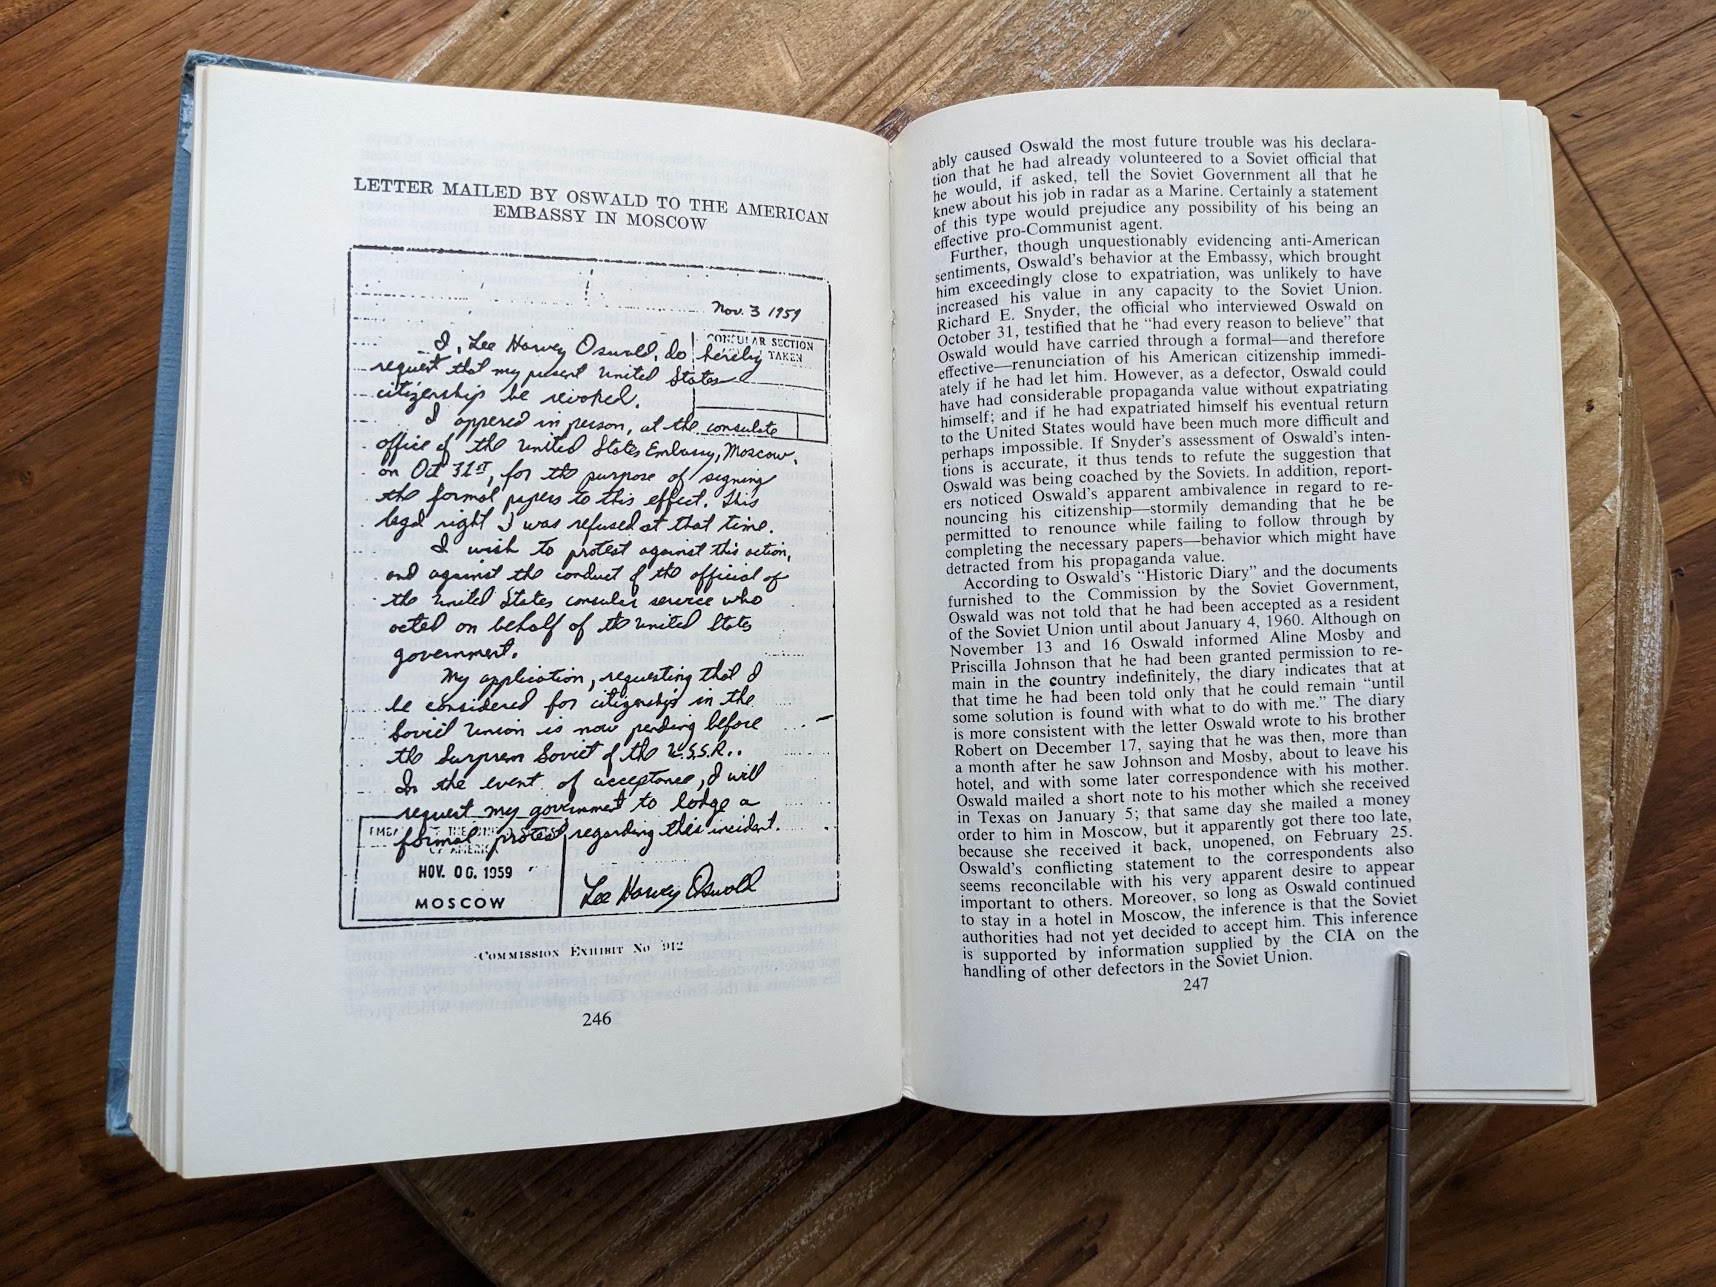 LETTER MAILED BY OSWALD TO THE AMERICAN
EMBASSY IN MOSCOW
Nov. 3 1959
CONSULAR SECTION
TAKEN
I, Lee Harvey Oswald, do hereby
request that my present United States
citizenship be revoked.
I appered in person, at the consulate
office of the United States Embassy, Moscow,
on Oct 31st, for the purpose of signing
the formal papers to this effect. This
legal right I was refused at that time.
I wish to protest against this action,
and against the conduct of the official of
the United States consular service who
acted on behalf of the United States
government.
My application, requesting that I
be considered for citizenship in the
Soviet Union is now pending before
the Surprem Soviet of the U.S.S.R..
In the event of acceptance, I will
request my government to lodge a
formal protest regarding this incident.
OF AMERICA
NOV. 06. 1959
MOSCOW
Lee Harvey Oswald
COMMISSION EXHIBIT NO 912
246
ably caused Oswald the most future trouble was his declara-
tion that he had already volunteered to a Soviet official that
he would, if asked, tell the Soviet Government all that he
knew about his job in radar as a Marine. Certainly a statement
of this type would prejudice any possibility of his being an
effective pro-Communist agent.
Further, though unquestionably evidencing anti-American
sentiments, Oswald's behavior at the Embassy, which brought
him exceedingly close to expatriation, was unlikely to have
increased his value in any capacity to the Soviet Union.
Richard E. Snyder, the official who interviewed Oswald on
October 31, testified that he "had every reason to believe" that
Oswald would have carried through a formal—and therefore
effective—renunciation of his American citizenship immedi-
ately if he had let him. However, as a defector, Oswald could
have had considerable propaganda value without expatriating
himself; and if he had expatriated himself his eventual return
to the United States would have been much more difficult and
perhaps impossible. If Snyder's assessment of Oswald's inten-
tions is accurate, it thus tends to refute the suggestion that
Oswald was being coached by the Soviets. In addition, report-
ers noticed Oswald's apparent ambivalence in regard to re-
nouncing his citizenship—stormily demanding that he be
permitted to renounce while failing to follow through by
completing the necessary papers—behavior which might have
detracted from his propaganda value.
According to Oswald's "Historic Diary" and the documents
furnished to the Commission by the Soviet Government,
Oswald was not told that he had been accepted as a resident
of the Soviet Union until about January 4, 1960. Although on
November 13 and 16 Oswald informed Aline Mosby and
Priscilla Johnson that he had been granted permission to re-
main in the country indefinitely, the diary indicates that at
that time he had been told only that he could remain "until
some solution is found with what to do with me." The diary
is more consistent with the letter Oswald wrote to his brother
Robert on December 17, saying that he was then, more than
a month after he saw Johnson and Mosby, about to leave his
hotel, and with some later correspondence with his mother.
Oswald mailed a short note to his mother which she received
in Texas on January 5; that same day she mailed a money
order to him in Moscow, but it apparently got there too late,
because she received it back, unopened, on February 25.
Oswald's conflicting statement to the correspondents also
seems reconcilable with his very apparent desire to appear
important to others. Moreover, so long as Oswald continued
to stay in a hotel in Moscow, the inference is that the Soviet
authorities had not yet decided to accept him. This inference
is supported by information supplied by the CIA on the
handling of other defectors in the Soviet Union.
247